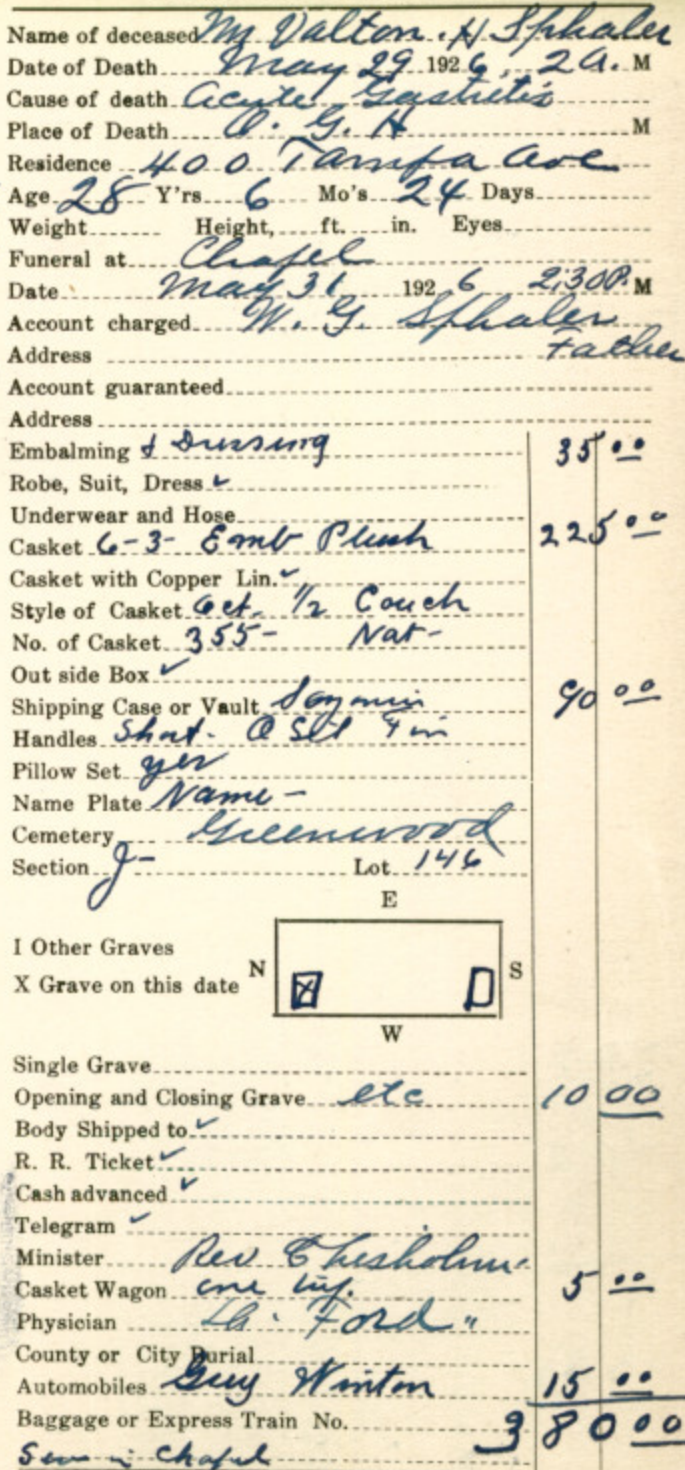 Name of deceased Mr Valton . H Sphaler
Date of Death May 29 1926, 2 a. M
Cause of death Acute Gastritis
Place of Death O. G. H M
Residence 400 Tampa Ave
Age 28 Y'rs 6 Mo's 24 Days
Weight Height, ft. in. Eyes
Funeral at Chapel
Date May 31 1926 2:30 P. M
Account charged W. G. Sphaler
Address Father
Account guaranteed
Address
Embalming & Dressing 35 00
Robe, Suit, Dress ✓
Underwear and Hose
Casket 6-3- Emb Plush 225 00
Casket with Copper Lin. ✓
Style of Casket Oct. 1/2 Couch
No. of Casket 355- Nat-
Out side Box ✓
Shipping Case or Vault 90 00
Handles Short.
Pillow Set yes
Name Plate Name -
Cemetery Greenwood
Section J- Lot 146
E
I Other Graves
X Grave on this date N S
W
Single Grave
Opening and Closing Grave etc 10 00
Body Shipped to ✓
R. R. Ticket ✓
Cash advanced ✓
Telegram ✓
Minister Rev Chisholm
Casket Wagon one 5 00
Physician Dr. Ford "
County or City Burial
Automobiles Guy Winton 15 00
Baggage or Express Train No. 380 00
in Chapel